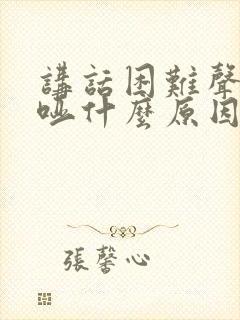 講話困難聲
啞什麼原因
張馨心